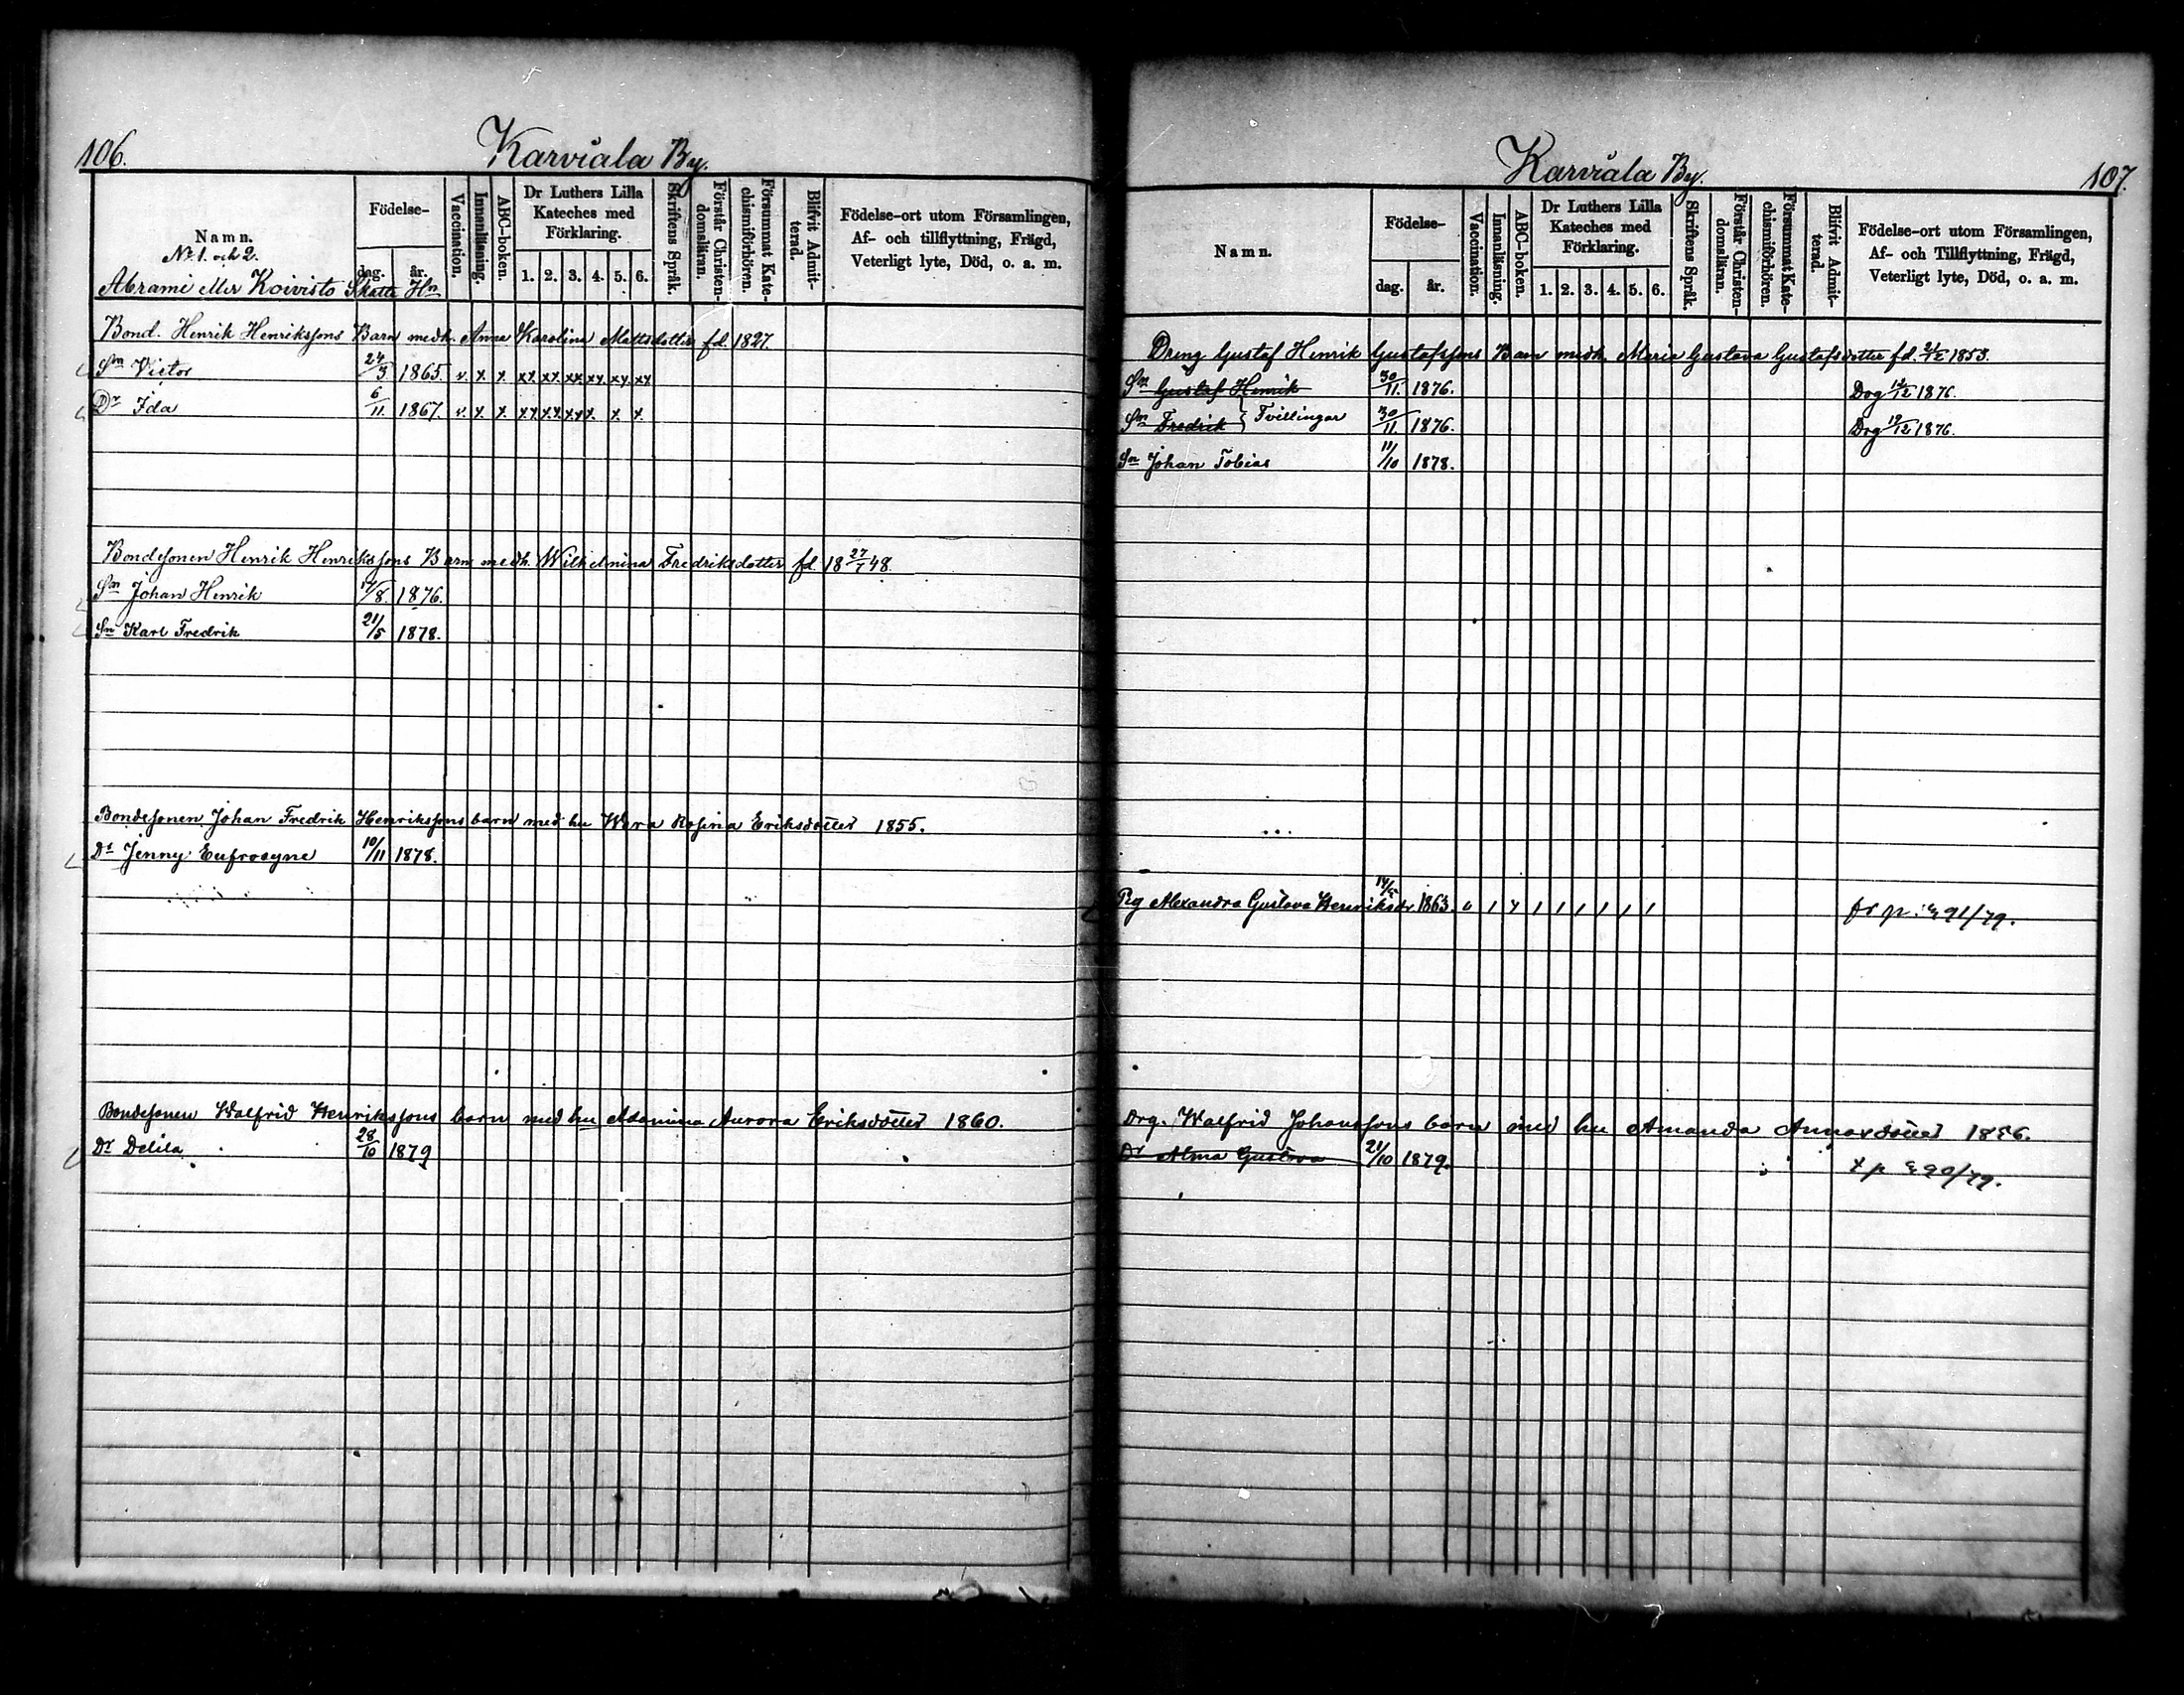 106.
Karviala By.
Namn.
Födelse-
dag.
år.
Vaccination.
Innanläsning.
ABC-boken.
Dr Luthers Lilla
Kateches med
Förklaring.
1. 2. 3. 4. 5. 6.
Skriftens Språk.
Förstår Christen-
domsläran.
Försummat Kate-
chismiförhören.
Blifvit Admit-
terad.
Födelse-ort utom Församlingen,
Af- och tillflyttning, Frägd,
Veterligt lyte, Död, o. a. m.
No 1. och 2.
Abrami eller Koivisto Skatte Hn
Bond. Henrik Henrikssons Barn medh. Anna Karolina Mattsdotter fd. 1827.
Sn Victor 24/3 1865. v. x x. xx xx xx xx xx xx
Dr Ida 6/11 1867. v. x x. xx xx xx x. x. x.
Bondesonen Henrik Henrikssons Barn medh. Wilhelmina Fredriksdotter fd. 18 27/1 48.
Sn Johan Henrik 14/8 1876.
Sn Karl Fredrik 21/5 1878.
Bondesonen Johan Fredrik Henrikssons barn med hu Wera Rosina Eriksdotter 1855.
Dr Jenny Eufrosyne 10/11 1878.
Bondesonen Walfrid Henrikssons barn med hu Adamina Aurora Eriksdotter 1860.
Dr Delila 28/10 1879
107.
Karviala By.
Namn.
Födelse-
dag.
år.
Vaccination.
Innanläsning.
ABC-boken.
Dr Luthers Lilla
Kateches med
Förklaring.
1. 2. 3. 4. 5. 6.
Skriftens Språk.
Förstår Christen-
domsläran.
Försummat Kate-
chismiförhören.
Blifvit Admit-
terad.
Födelse-ort utom Församlingen,
Af- och Tillflyttning, Frägd,
Veterligt lyte, Död, o. a. m.
Dreng Gustaf Henrik Gustafssons Barn medh. Maria Gustava Gustafsdotter fd. 1853.
Sn Gustaf Henrik 30/11. 1876. Dog 1876.
Sn Fredrik } Tvillingar 30/11 1876. Dog 19/12 1876.
Sn Johan Tobias 11/10 1878.
Pig Alexandra Gustava Henriksdr. 14/5 1863.
fr p. 91/79.
Drg. Walfrid Johanssons barn med hu Amanda 1856.
Dr Alma Gustava 21/10 1879.